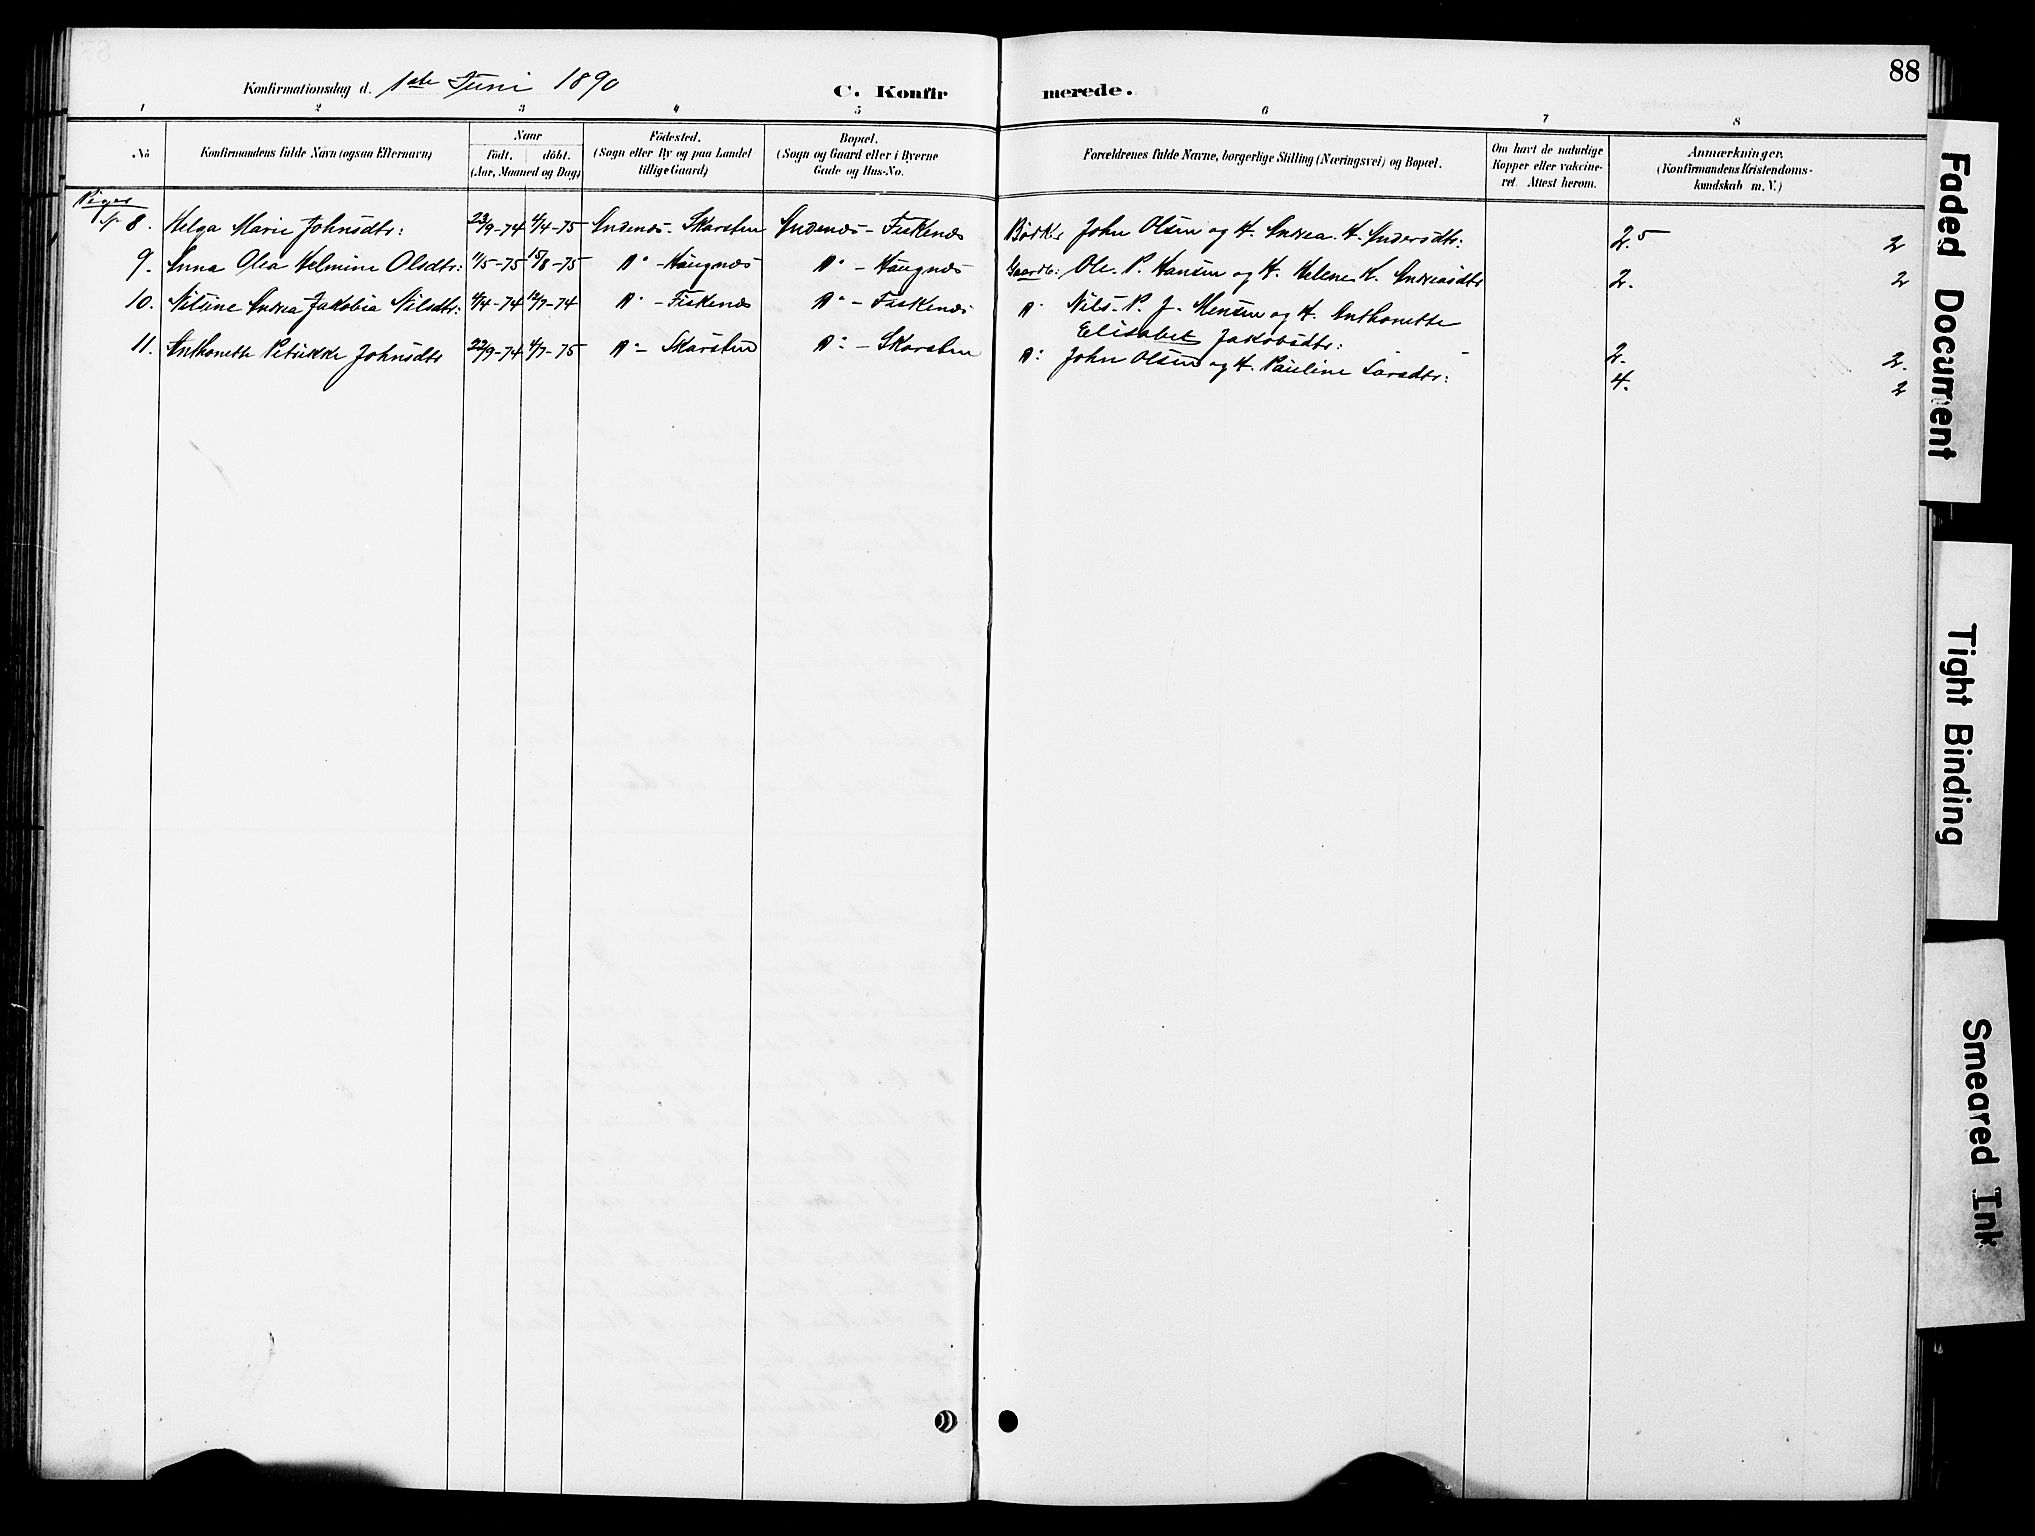 88
Konfirmationsdag d. 1ste Juni 1890
C. Konfirmerede.
1 2 3 4 5 6 7 8
No
Konfirmandens fulde Navn (ogsaa Efternavn)
Naar
födt. döbt.
(Aar, Maaned og Dag)
Födested.
(Sogn eller By og paa Landet
tillige Gaard)
Bopæl.
(Sogn og Gaard eller i Byerne
Gade og Hus-No.
Forældrenes fulde Navne, borgerlige Stilling (Næringsvei) og Bopæl.
Om havt de naturlige
Kopper eller vakcine-
ret. Attest herom.
Anmærkninger,
(Konfirmandens Kristendoms-
kundskab m. V.)
Piger
8. Helga Marie Johnsdtr: 23/9-74 4/4-75 Andenæs - Skarsten Andenæs - Fiskenæs John Olsen og H. Andrea H. Andersdtr: 2.5 2
9. Anna Olea Helmine Olsdtr: 11/5-75 15/8-75 D° - Haugnæs D° - Haugnæs Gaardb: Ole P. Hansen og H. Helene H. Andreasdtr 2. 2
10. Nilsine Andrea Jakobia Nilsdtr: 4/4-74 12/7-74 D° - Fiskenæs D° - Fiskenæs D° Nils P. J. Hensen og H. Anthonette
Elisabet Jakobsdtr: 2. 2.
11. Anthonette Petrikke Johnsdtr 22/9-74 4/7-75 D° - Skarsten D° - Skarsten D° John Olsen og H. Pauline Larsdtr: 4. 2
Faded Document
Tight Binding
Smeared Ink